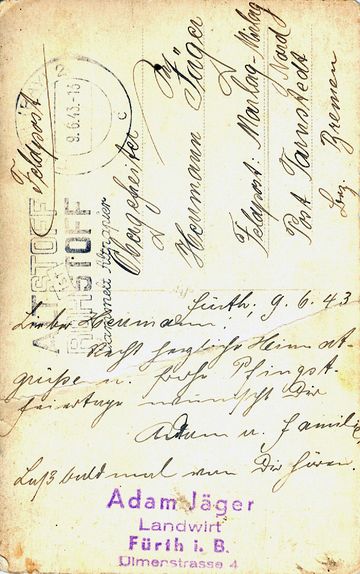 Feldpost
9.6.43.-13
c
ALTSTOFF
ROHSTOFF
Obergefreiter
Hermann Jäger
Feldpost: Marlag-Milag
Nord
Post Tarnstedt
Bremen
Fürth. 9. 6. 43
Lieber Hermann!
Recht herzliche Heimat-
grüße u. frohe Pfingst-
feiertage wünscht Dir
Adam u. Familie
Laß bald mal von Dir hören.
Adam Jäger
Landwirt
Fürth i. B.
Ulmenstrasse 4